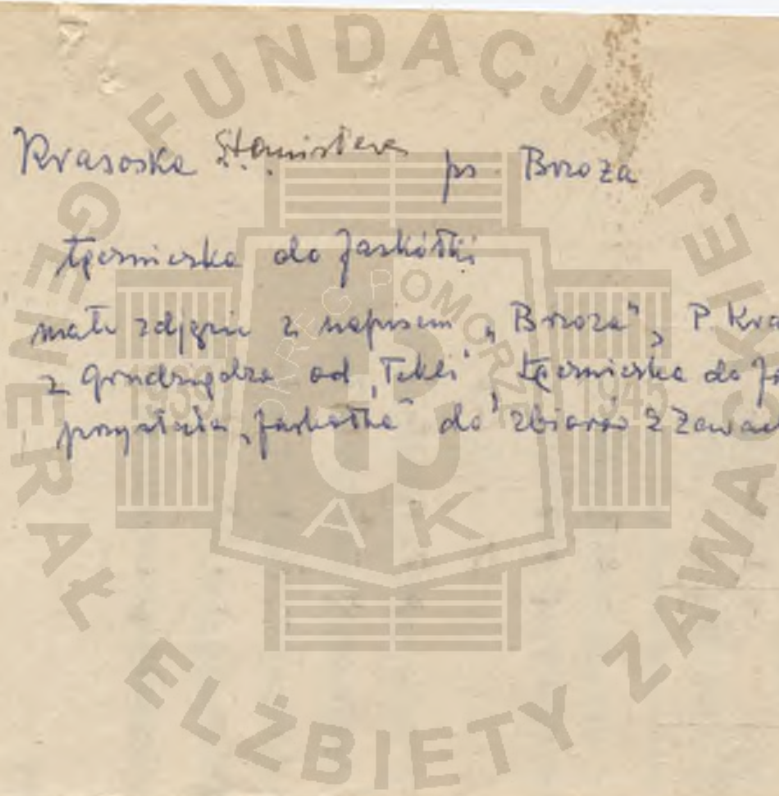 Krasoska Stanisława ps. Brzoza
łączniczka do Jaskółki
małe zdjęcie z napisem „Brzoza”, P. Kra
z Grudziądza od „Tekli” łączniczka do Ja
przysłała „Jaskółka” do zbiorów Zawac
FUNDACJA
GENERAŁ ELŻBIETY ZAWACKIEJ
OKRĘG POMORZE
1939 1945
AK